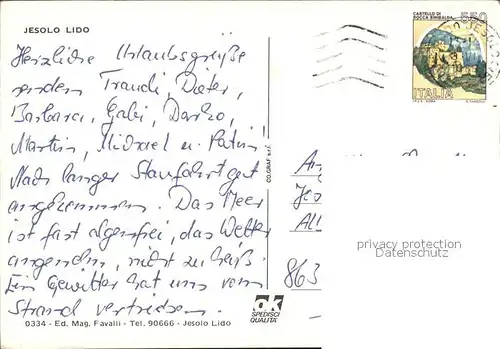 JESOLO LIDO
CASTELLO DI
ROCCA SINIBALDA
550
ITALIA
Herzliche Urlaubsgrüße
senden Traudi, Dieter,
Barbara, Gabi, Darko,
Martin, Michael u. Patrizi
Nach langer Staufahrt gut
angekommen. Das Meer
ist fast algenfrei, das Wetter
angenehm, nicht zu heiß.
Ein Gewitter hat uns vom
Strand vertrieben.
CO.GRAF s.r.l.
An
Jes
All
863
privacy protection
Datenschutz
ok
SPEDISCI
QUALITA'
0334 - Ed. Mag. Favalli - Tel. 90666 - Jesolo Lido